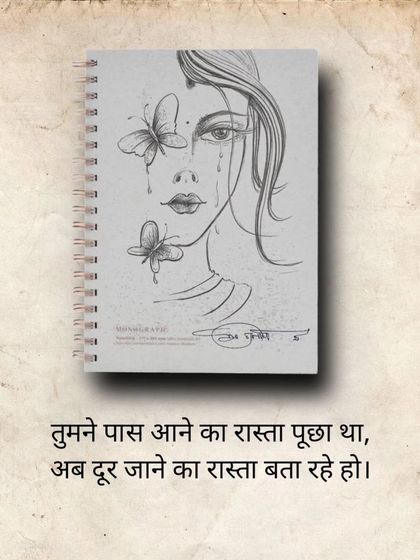 MONOGRAPH
तुमने पास आने का रास्ता पूछा था,
अब दूर जाने का रास्ता बता रहे हो।